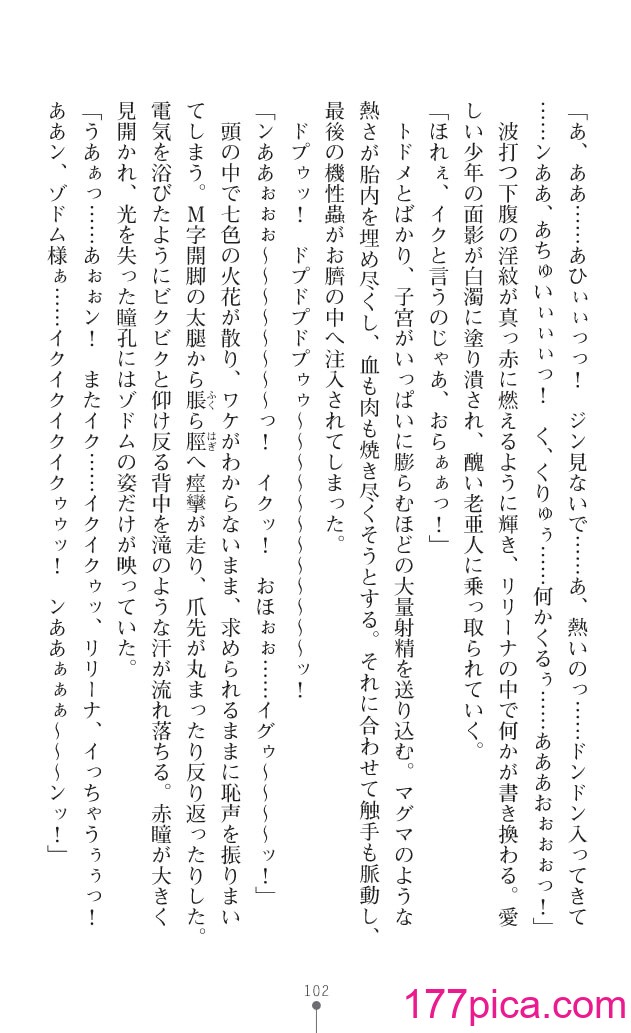 「あ、ああ……あひぃぃっっ！　ジン見ないで……あ、熱いのっ……ドンドン入ってきて
……ンああ、あちゅいぃぃぃっ！　く、くりゅぅ……何かくるぅ……あああおぉぉぉっ！」
　波打つ下腹の淫紋が真っ赤に燃えるように輝き、リリーナの中で何かが書き換わる。愛
しい少年の面影が白濁に塗り潰され、醜い老亜人に乗っ取られていく。
「ほれぇ、イクと言うのじゃあ、おらぁぁっ！」
　トドメとばかり、子宮がいっぱいに膨らむほどの大量射精を送り込む。マグマのような
熱さが胎内を埋め尽くし、血も肉も焼き尽くそうとする。それに合わせて触手も脈動し、
最後の機性蟲がお臍の中へ注入されてしまった。
　ドプゥッ！　ドプドプドプゥゥ～～～～～～～～～～～ッ！
「ンああぉぉぉ～～～～～～～っ！　イクッ！　おほぉぉ……イグゥ～～～～ッ！」
　頭の中で七色の火花が散り、ワケがわからないまま、求められるままに恥声を振りまい
てしまう。Ｍ字開脚の太腿から脹ら脛へ痙攣が走り、爪先が丸まったり反り返ったりした。
電気を浴びたようにビクビクと仰け反る背中を滝のような汗が流れ落ちる。赤瞳が大きく
見開かれ、光を失った瞳孔にはゾドムの姿だけが映っていた。
「うあぁっ……あぉぉン！　またイク……イクイクゥッ、リリーナ、イっちゃうぅぅっ！
ああン、ゾドム様ぁ……イクイクイクイクゥゥッ！　ンああぁぁぁ～～～ンッ！」
102
177pica.com